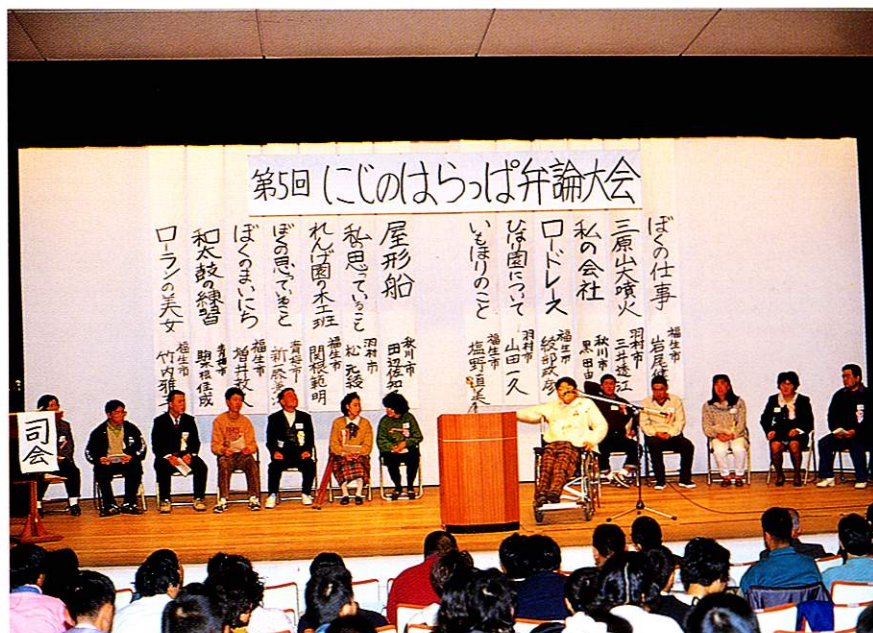 第5回 にじのはらっぱ弁論大会
ぼくの仕事 福生市 岩尾
三原山大噴火 羽村市 三井透江
私の会社 秋川市 黒田
ロードレース 福生市 綾部
ひばり園について 羽村市 山田一久
いもほりのこと 福生市 塩野
屋形船 秋川市 田辺佐知
私の思っていること 羽村市 松元綾
れんげ園の木工班 福生市 関根範明
ぼくの思っていること 青梅市 新藤
ぼくのまいにち 福生市 増井
和太鼓の練習 青梅市
ローランの美女 福生市 竹内
司会